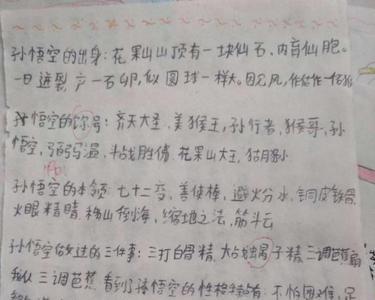 孙悟空的出身:花果山山顶有一块仙石,内育仙胞。
一日迸裂,产一石卵,似圆球一样大。因见风,化作一石猴
孙悟空的称号:齐天大圣、美猴王、孙行者、猴哥、孙
悟空、弼马温、斗战胜佛、花果山大王
孙悟空的本领:七十二变、善使棒、避火分水、铜皮铁骨、
火眼精睛、移山倒海、缩地之法、筋斗云
孙悟空做过的三件事:三打白骨精、三调芭蕉扇
三调芭蕉 看到了孙悟空的性格 有:不怕困难,足